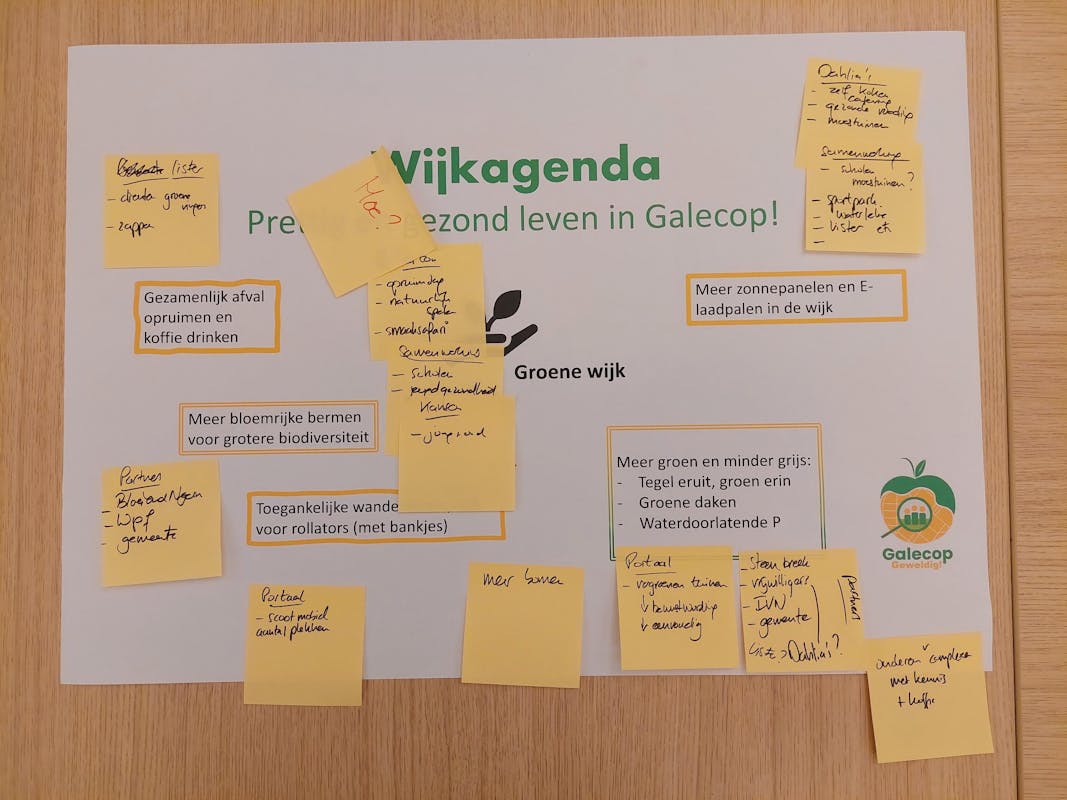 Dahlia's
- zelf koken
catering
- gezonde voeding
- moestuinen
Samenwerking
- scholen
moestuinen?
- sportpark
- waterlelie
- Lister etc
-
lister
- clienten groene
vingers
- zappen
Hoe?
Wijkagenda
gezond leven in Galecop!
- opruimdag
- natuurlijk
spelen
- smaaksafari
Samenwerking
- scholen
- jeugdgezondheid
Kansen
- jongeren
Gezamenlijk afval
opruimen en
koffie drinken
Meer zonnepanelen en E-
laadpalen in de wijk
Groene wijk
Meer bloemrijke bermen
voor grotere biodiversiteit
Partners
- Bloeiend Ngein
- WPF
- gemeente
Toegankelijke
voor rollators (met bankjes)
Meer groen en minder grijs:
- Tegel eruit, groen erin
- Groene daken
- Waterdoorlatende P
Galecop
Geweldig!
Portaal
- scootmobiel
aantal plekken
meer bomen
Portaal
- vergroenen tuinen
↓ bewustwording
↓ eenvoudig
- Steenbreek
- vrijwilligers
- IVN
- gemeente
Lister? Dahlia's?
partners
anderen complexen
met kennis
+ koffie